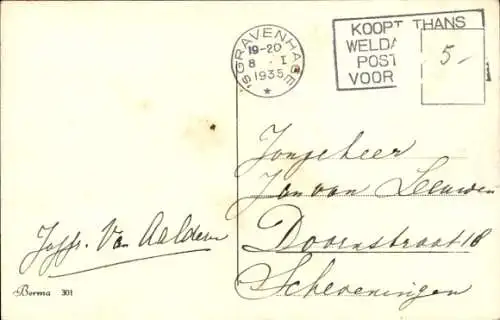 'SGRAVENHAGE
19-20
8 · I
1935
*
KOOPT THANS
WELDA
POST
VOOR
5-
Jongeheer
Jan van Leeuwen
Doornstraat 18
Scheveningen
Joffr. Van Aalderen
Berma 301